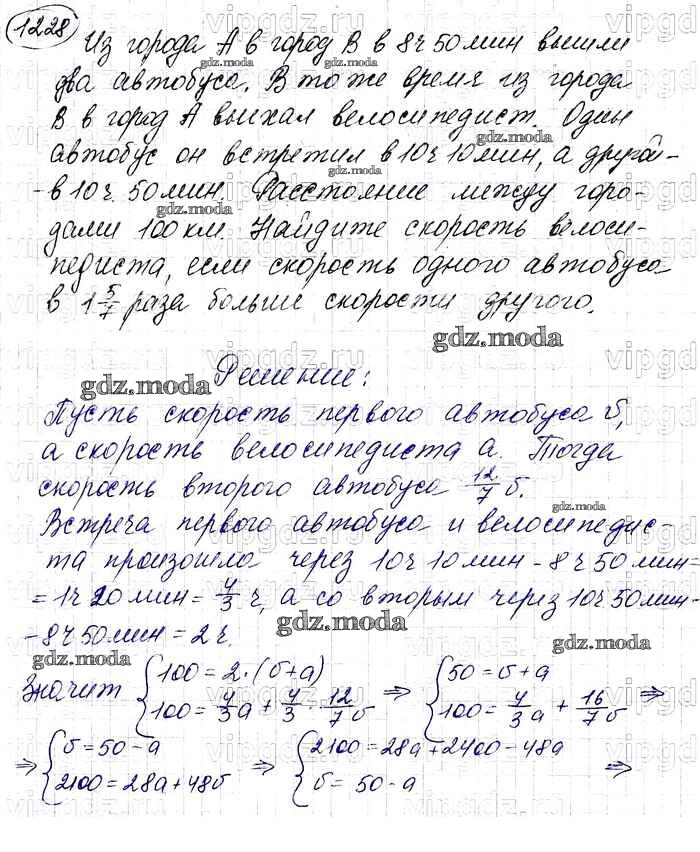 1228
Из города А в город В в 8ч 50мин вышли
два автобуса. В то же время из города
В в город А выехал велосипедист. Один
автобус он встретил в 10ч 10мин, а другой -
- в 10ч. 50мин. Расстояние между горо-
дами 100км. Найдите скорость велоси-
педиста, если скорость одного автобуса
в 1 5/7 раза больше скорости другого.
gdz.moda
Решение:
Пусть скорость первого автобуса б,
а скорость велосипедиста а. Тогда
скорость второго автобуса 12/7 б.
Встреча первого автобуса и велосипедис-
та произошла через 10ч 10мин - 8ч 50мин=
= 1ч 20мин = 4/3 ч, а со вторым через 10ч 50мин-
- 8ч 50мин = 2ч.
Значит { 100 = 2·(б+а) ⇒ { 50 = б+а ⇒
100 = 4/3 а + 4/3 · 12/7 б 100 = 4/3 а + 16/7 б
⇒ { б = 50 - а ⇒ { 2100 = 28а + 2400 - 48а ⇒
2100 = 28а + 48б б = 50 - а